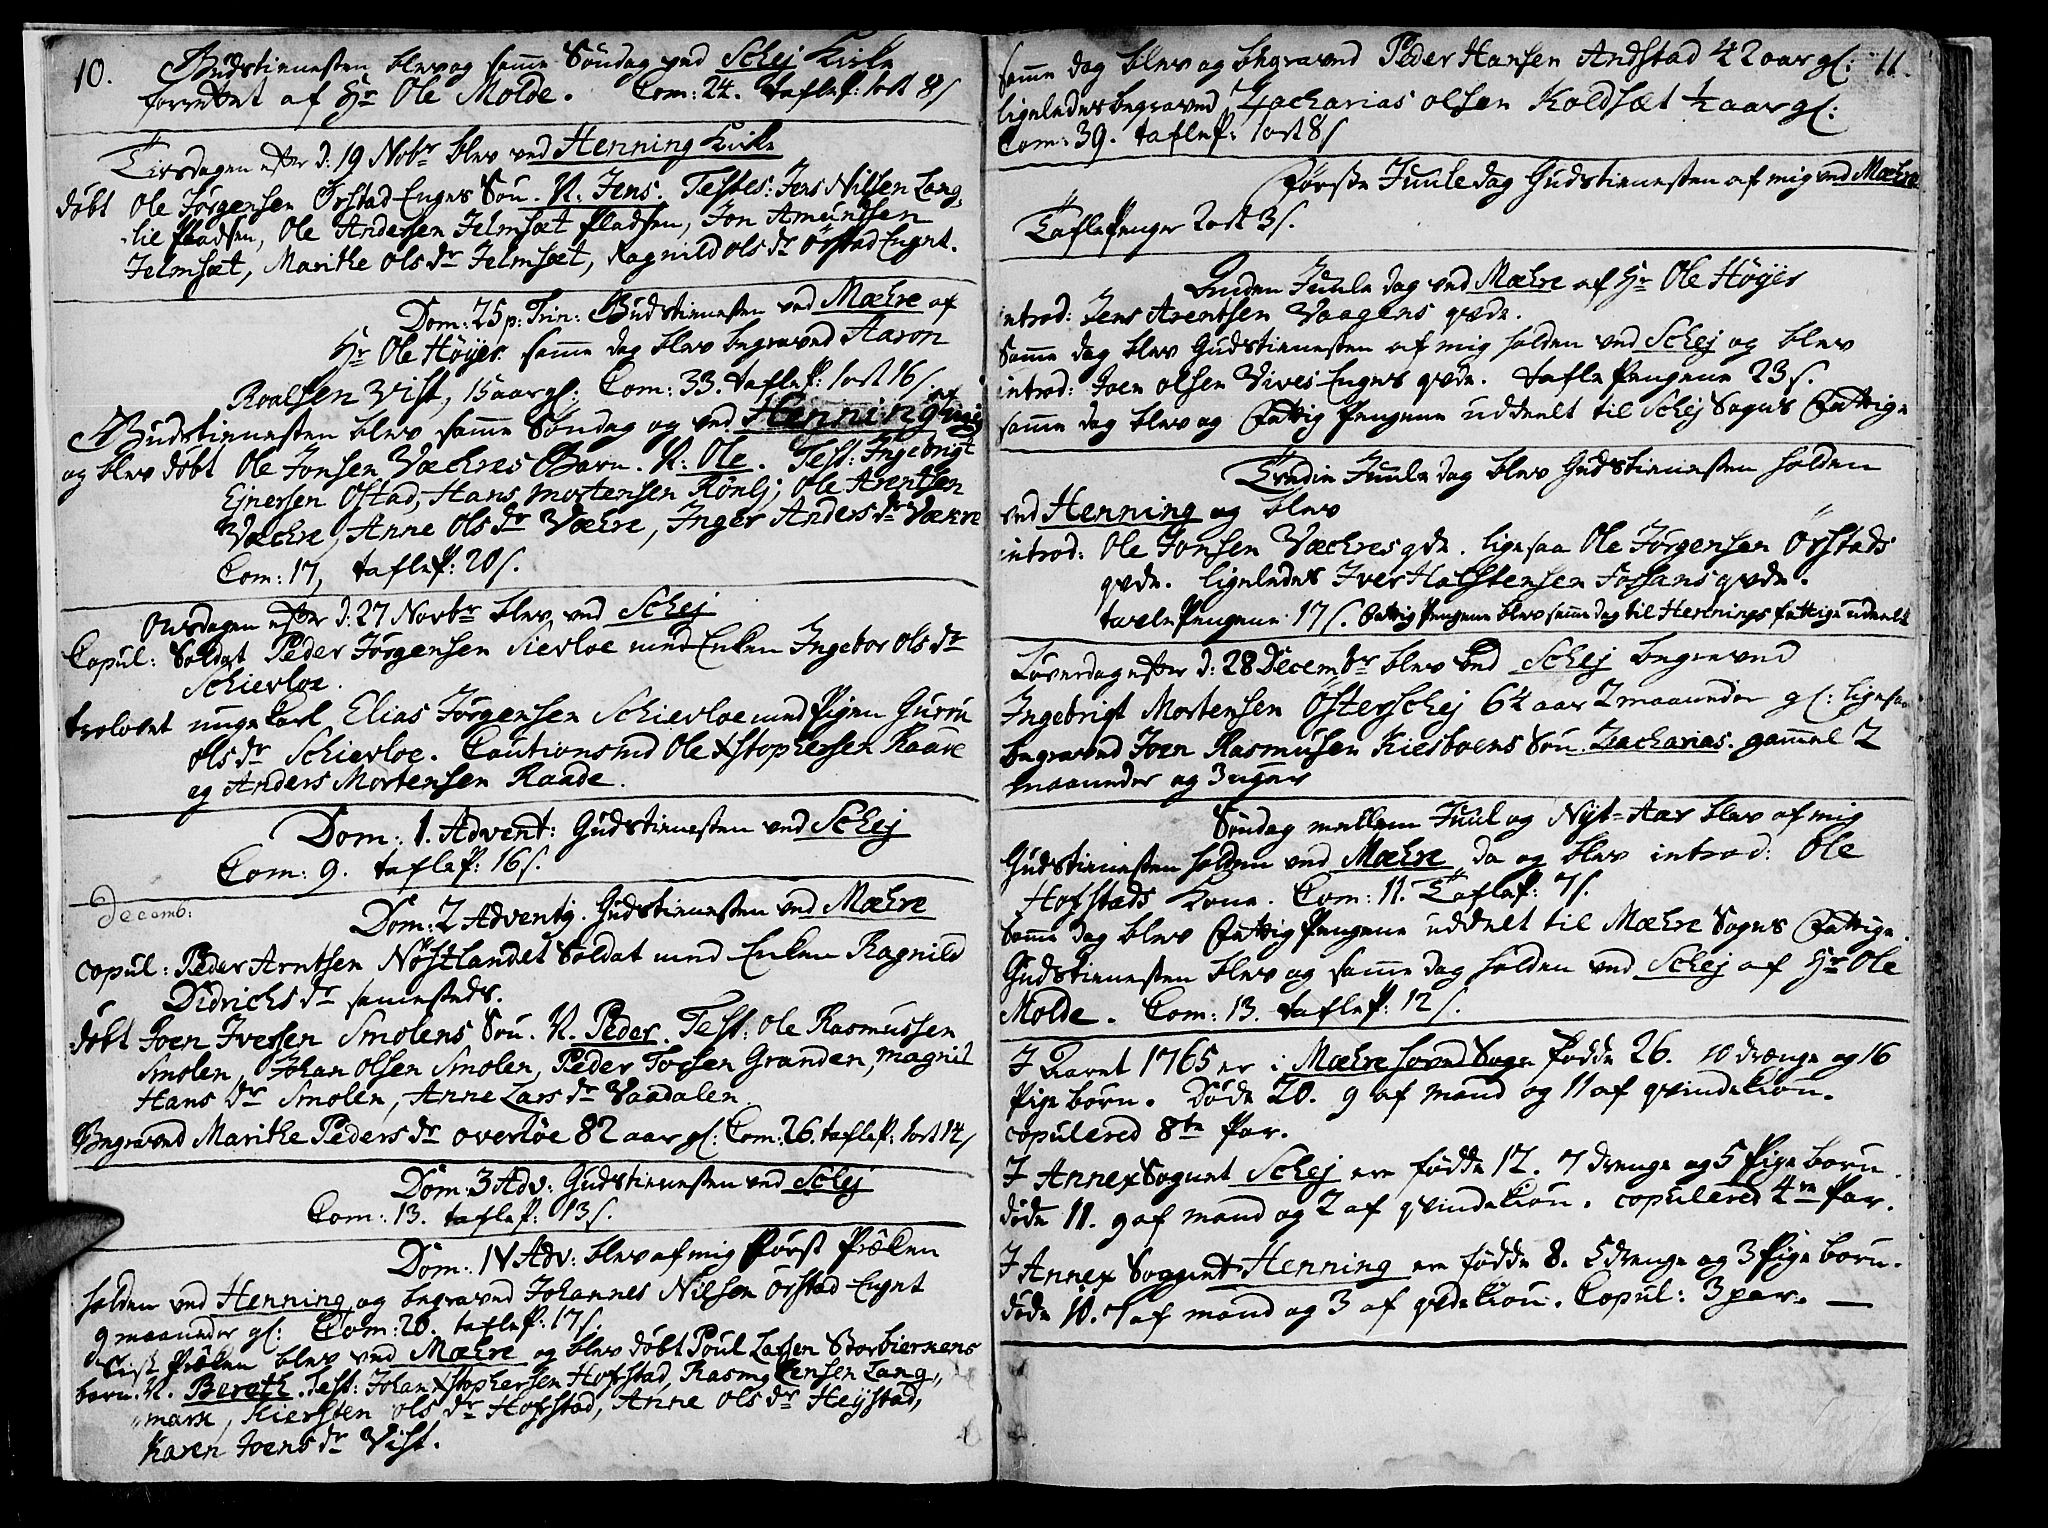 10. Gudstienesten blev og samme Søndag ved Schej Kirke
forrettet af Hr Ole Molde. Com: 24. taflep: 1 ort 8 s
Tirsdagen efter d: 19 Nobr blev ved Henning Kirke
døbt Ole Jørgensen Ørstad Engnes Søn. N. Jens. Testes: Jens Nilsen Lang-
lie Pladsen, Ole Andersen Jelmsæt Pladsen, Jon Amundsen
Jelmsæt, Marithe Ols dr Jelmsæt, Ragnild Ols dr Ørstad Engnt.
Dom: 25 p: Trin: Gudstienesten ved Mæhre af
Hr Ole Høyer samme dag blev begraved Aaron
Roalsen Vist, 15 aar gl: Com: 33. taflep: 1 ort 16 s.
Gudstienesten blev samme Søndag og ved Henning af mig
og blev døbt Ole Jonsen Væchres Barn. N: Ole. Test: Ingebrigt
Ejnersen Østad, Hans Mortensen Rønlj, Ole Arentsen
Væchre, Anne Ols dr Væhre, Inger Anders dr Væhre
Com: 17, taflep: 20 s.
Onsdagen efter d: 27 Novbr blev ved Schej
Copul: Soldat Peder Jørgensen Sievloe med Enken Ingebor Ols dr
Schievloe.
trolovet unge Karl Elias Jørgensen Schievloe med Pigen Guru
Ols dr Schievloe. Cautionsmd Ole Xstophersen Raave
og Anders Mortensen Raade.
Dom: 1. Advent: Gudstienesten ved Schej
Com: 9. taflep: 16 s.
Decemb:
Dom: 2 Adventj. Gudstienesten ved Mæhre
copul: Peder Arntsen Nøstlandet Soldat med Enken Ragnild
Didrichs dr samesteds.
døbt Joen Iversen Smolens Søn. N. Peder. Test: Ole Rasmussen
Smolen, Johan Olsen Smolen, Peder Toesen Granden, Magnil
Hans dr Smolen, Anne Lars dr Vaadalen.
Begraved Marithe Peders dr Overløe 82 aar gl: Com: 26. taflep: 1 ort 14 s
Dom: 3 Adv: Gudstienesten ved Schej
Com: 13. taflep: 13 s.
Dom: IV Adv: blev af mig først Præken
holden ved Henning og begraved Johannes Nilsen Ørstad Engnt
9 maaneder gl: Com: 20. taflep: 17 s.
Sist Præken blev ved Mæhre og blev døbt Poul Larsen Storbiernens
barn. N. Berath. Test: Johan Xstophersen Hofstad, Rasm: Lensen Lang-
mark, Kiersten Ols dr Hofstad, Anne Ols dr Heystad,
Karen Joens dr Vist.
samme dag blev og begraved Peder Hansen Andstad 42 aar gl: 11.
ligeledes begraved Zacharias Olsen Koldsæt ½ aar gl:
Com: 39. taflep: 1 ort 8 s
Første Juule dag Gudstienesten af mig ved Mæhre
Taflepenger 2 ort 3 s.
Anden Juule dag ved Mæhre af Hr Ole Høyer
introd: Jens Arentsen Vaagens qvde.
Samme dag blev Gudstienesten af mig holden ved Schej og blev
introd: Joen Olsen Vives Engnes qvde. Tafle Pengene 23 s.
samme dag blev og Fattig Pengene uddeelt til Schej Sogns Fattige
Tredie Juule dag blev Gudstienesten holden
ved Henning og blev
introd: Ole Jonsen Væchres qde. ligesaa Ole Jørgensen Ørstads
qvde. ligeledes Iver Halstensen Fossans qvde.
tavlepengene 17 s. Fattig Pengene blev samme dag til Hennings fattige uddeelt
Løverdag efter d: 28 Decembr blev ved Schej begraved
Ingebrigt Mortensen Østerschej 64 aar 2 maaneder gl: ligesaa
begraved Joen Rasmusen Kiesboens Søn Zacharias. gammel 2
maaneder og 3 uger
Søndag mellem Juul og Nyt-Aar blev af mig
Gudstienesten holden ved Mæhre da og blev introd: Ole
Hofstads Kone. Com: 11. Taflep: 7 s.
Samme dag blev Fattig Pengene uddelt til Mæhre Sogns Fattige.
Gudstienesten blev og samme dag holden ved Schej af Hr Ole
Molde. Com: 13. taflep: 12 s.
I Aaret 1765 er i Mæhre hoved Sogn fødde 26. 10 drænge og 16
Pige børn. Døde 20. 9 af mand og 11 af qvindekiøn.
copulered 8te Par.
I Annex Sognet Schej ere fødde 12. 7 drenge og 5 Pige børn
døde 11. 9 af mand og 2 af qvindekiøn. copulered 4re Par.
I Annex Sognet Henning ere fødde 8. 5 drenge og 3 Pige børn.
døde 10. 7 af mand og 3 af qvdekiøn. Copul: 3 par.